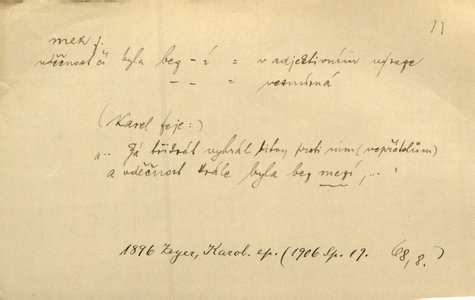 11
mez f.
vděčnost čí byla bez - í = v adjektivním výraze
— — = nesmírná
(Karel feje:)
„.. Já třikrát vyhrál bitvy proti nim (nepřátelům)
a vděčnost krále byla bez mezí,.. "
1896 Zeyer, Karol. ep. (1906 Sp. 19. 68, 8.)